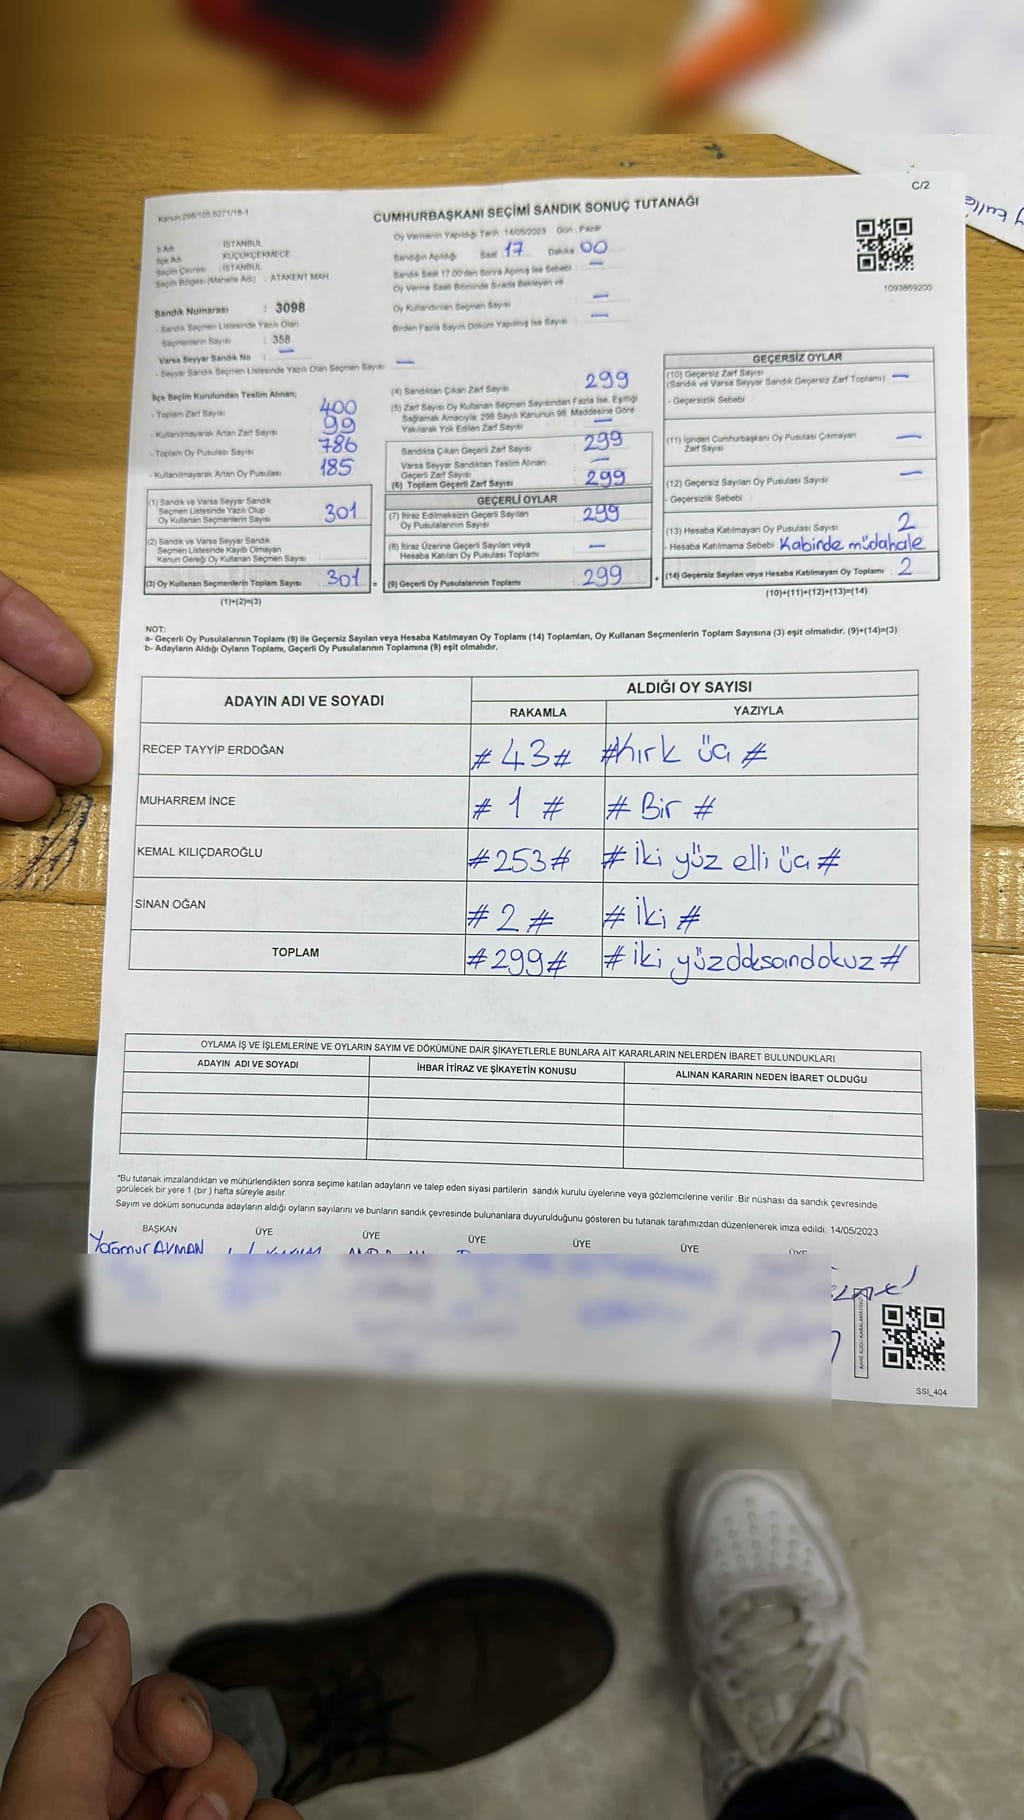 C/2
Kanun 298/105.6271/18-1
CUMHURBAŞKANI SEÇİMİ SANDIK SONUÇ TUTANAĞI
1093869200
İl Adı : İSTANBUL
İlçe Adı : KÜÇÜKÇEKMECE
Seçim Çevresi : İSTANBUL
Seçim Bölgesi (Mahalle Adı) : ATAKENT MAH.
Oy Vermenin Yapıldığı Tarih : 14/05/2023 Gün : Pazar
Sandığın Açıldığı Saat 17 Dakika 00
Sandık Saat 17.00'den Sonra Açılmış İse Sebebi : —
Oy Verme Saati Bitiminde Sırada Bekleyen ve
Oy Kullandırılan Seçmen Sayısı —
Birden Fazla Sayım Döküm Yapılmış İse Sayısı —
Sandık Numarası : 3098
- Sandık Seçmen Listesinde Yazılı Olan
Seçmenlerin Sayısı : 358
Varsa Seyyar Sandık No : —
- Seyyar Sandık Seçmen Listesinde Yazılı Olan Seçmen Sayısı —
İlçe Seçim Kurulundan Teslim Alınan;
- Toplam Zarf Sayısı 400
- Kullanılmayarak Artan Zarf Sayısı 99
- Toplam Oy Pusulası Sayısı 786
- Kullanılmayarak Artan Oy Pusulası 185
(1) Sandık ve Varsa Seyyar Sandık
Seçmen Listesinde Yazılı Olup
Oy Kullanan Seçmenlerin Sayısı 301
(2) Sandık ve Varsa Seyyar Sandık
Seçmen Listesinde Kayıtlı Olmayan
Kanun Gereği Oy Kullanan Seçmen Sayısı
(3) Oy Kullanan Seçmenlerin Toplam Sayısı 301 =
(1)+(2)=(3)
(4) Sandıktan Çıkan Zarf Sayısı 299
(5) Zarf Sayısı Oy Kullanan Seçmen Sayısından Fazla İse, Eşitliği
Sağlamak Amacıyla; 298 Sayılı Kanunun 98. Maddesine Göre
Yakılarak Yok Edilen Zarf Sayısı —
Sandıkta Çıkan Geçerli Zarf Sayısı 299
Varsa Seyyar Sandıktan Teslim Alınan
Geçerli Zarf Sayısı —
(6) Toplam Geçerli Zarf Sayısı 299
GEÇERLİ OYLAR
(7) İtiraz Edilmeksizin Geçerli Sayılan
Oy Pusulalarının Sayısı : 299
(8) İtiraz Üzerine Geçerli Sayılan veya
Hesaba Katılan Oy Pusulası Toplamı : —
(9) Geçerli Oy Pusulalarının Toplamı : 299 +
GEÇERSİZ OYLAR
(10) Geçersiz Zarf Sayısı
(Sandık ve Varsa Seyyar Sandık Geçersiz Zarf Toplamı) —
- Geçersizlik Sebebi
(11) İçinden Cumhurbaşkanı Oy Pusulası Çıkmayan
Zarf Sayısı —
(12) Geçersiz Sayılan Oy Pusulası Sayısı —
- Geçersizlik Sebebi
(13) Hesaba Katılmayan Oy Pusulası Sayısı 2
- Hesaba Katılmama Sebebi Kabinde müdahale
(14) Geçersiz Sayılan veya Hesaba Katılmayan Oy Toplamı : 2
(10)+(11)+(12)+(13)=(14)
NOT:
a- Geçerli Oy Pusulalarının Toplamı (9) ile Geçersiz Sayılan veya Hesaba Katılmayan Oy Toplamı (14) Toplamları, Oy Kullanan Seçmenlerin Toplam Sayısına (3) eşit olmalıdır. (9)+(14)=(3)
b- Adayların Aldığı Oyların Toplamı, Geçerli Oy Pusulalarının Toplamına (9) eşit olmalıdır.
ADAYIN ADI VE SOYADI ALDIĞI OY SAYISI
RAKAMLA YAZIYLA
RECEP TAYYİP ERDOĞAN # 43 # # kırk üç #
MUHARREM İNCE # 1 # # Bir #
KEMAL KILIÇDAROĞLU # 253 # # iki yüz elli üç #
SİNAN OĞAN # 2 # # iki #
TOPLAM # 299 # # iki yüzdoksandokuz #
OYLAMA İŞ VE İŞLEMLERİNE VE OYLARIN SAYIM VE DÖKÜMÜNE DAİR ŞİKAYETLERLE BUNLARA AİT KARARLARIN NELERDEN İBARET BULUNDUKLARI
ADAYIN ADI VE SOYADI İHBAR İTİRAZ VE ŞİKAYETİN KONUSU ALINAN KARARIN NEDEN İBARET OLDUĞU
*Bu tutanak imzalandıktan ve mühürlendikten sonra seçime katılan adayların ve talep eden siyasi partilerin sandık kurulu üyelerine veya gözlemcilerine verilir. Bir nüshası da sandık çevresinde
görülecek bir yere 1 (bir) hafta süreyle asılır.
Sayım ve döküm sonucunda adayların aldığı oyların sayılarını ve bunların sandık çevresinde bulunanlara duyurulduğunu gösteren bu tutanak tarafımızdan düzenlenerek imza edildi. 14/05/2023
BAŞKAN ÜYE ÜYE ÜYE ÜYE ÜYE ÜYE
KARE KODU KARALAMAYINIZ
SSI_404